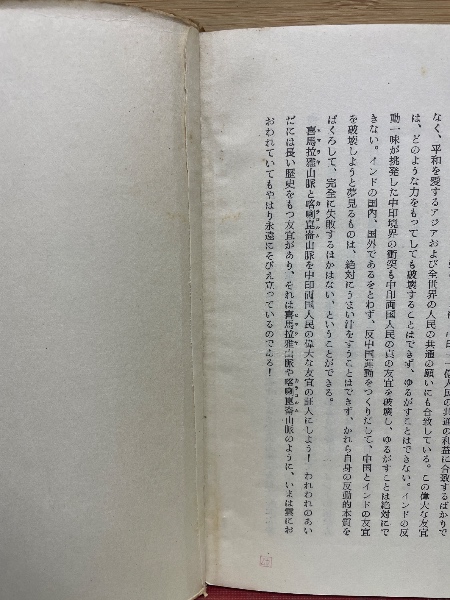 十二億人民の共通の利益に合致するばかりで
なく、平和を愛するアジアおよび全世界の人民の共通の願いにも合致している。この偉大な友宜
は、どのような力をもってしても破壊することはできず、ゆるがすことはできない。インドの反
動一味が挑発した中印境界の衝突も中印両国人民の真の友宜を破壊し、ゆるがすことは絶対にで
きない。インドの国内、国外であるをとわず、反中国運動をつくりだして、中国とインドの友宜
を破壊しようと夢見るものは、絶対にうまい汁をすうことはできず、かれら自身の反動的本質を
ばくろして、完全に失敗するほかはない、ということができる。
喜馬拉雅山脈と喀喇崑崙山脈を中印両国人民の偉大な友宜の証人にしよう！われわれのあい
だには長い歴史をもつ友宜があり、それは喜馬拉雅山脈や喀喇崑崙山脈のように、いまは雲にお
おわれていてもやはり永遠にそびえ立っているのである！